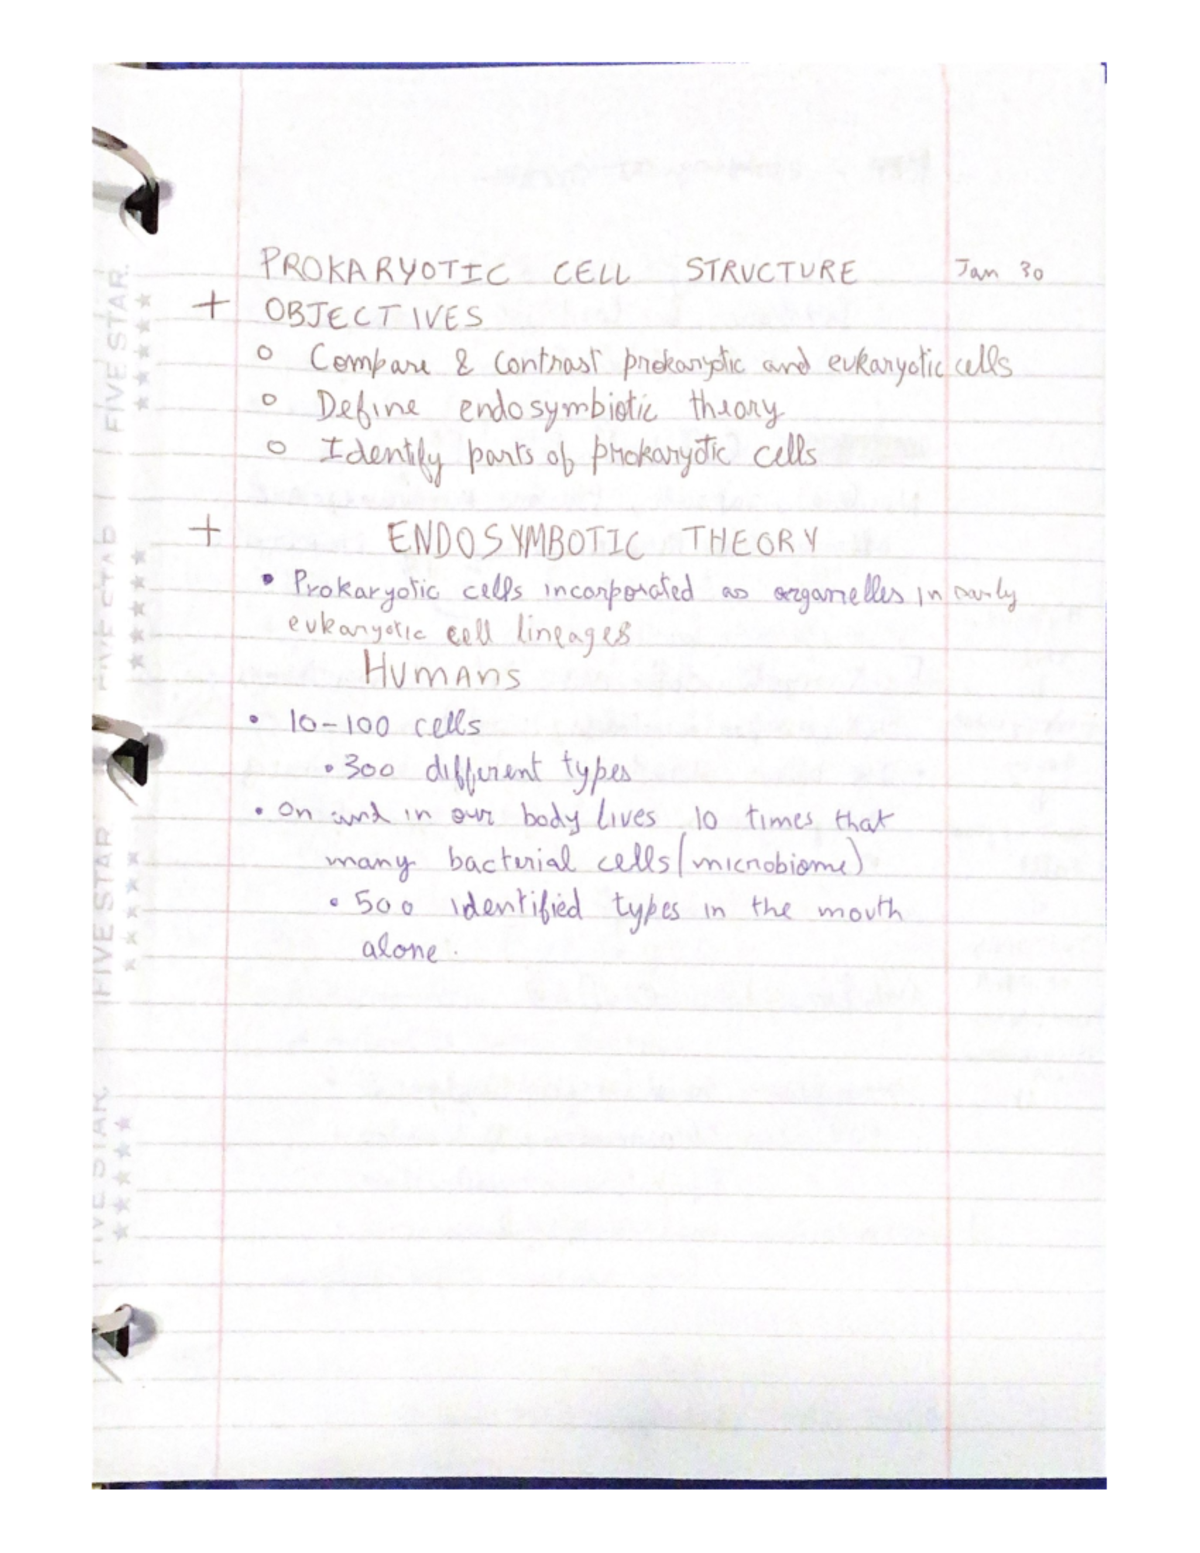 PROKARYOTIC CELL STRUCTURE Jan 30
+ OBJECTIVES
o Compare & contrast prokaryotic and eukaryotic cells
o Define endosymbiotic theory
o Identify parts of prokaryotic cells
+ ENDOSYMBOTIC THEORY
• Prokaryotic cells incorporated as organelles in early
eukaryotic cell lineages
HUMANS
• 10-100 cells
• 300 different types
• On and in our body lives 10 times that
many bacterial cells (microbiome)
• 500 identified types in the mouth
alone.
FIVE STAR.
FIVE STAR
FIVE STAR
FIVE STAR